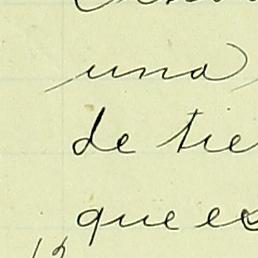 una
de tie
que es
12